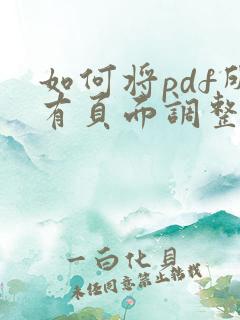 如何将pdf所
有页面调整
一白化贝
未经同意禁止转载